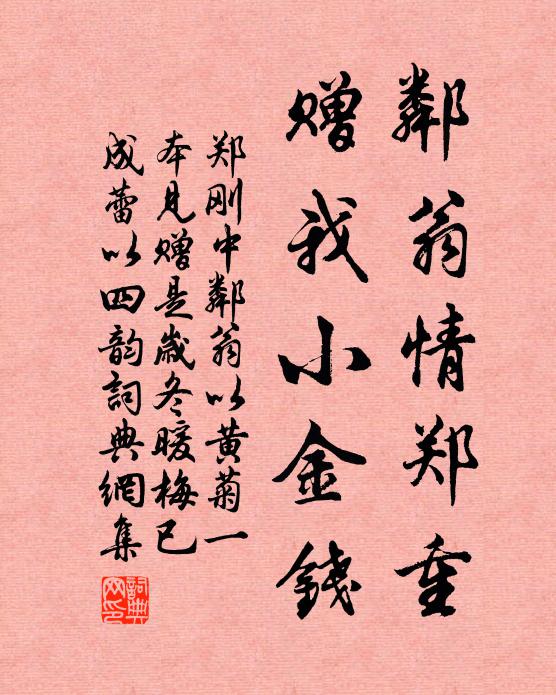 鄰翁情郑重
赠我小金錢
郑刚中鄰翁以黄菊一
本見赠是歲冬暖梅已
成蕾以四韵詞典網集
詞典网印